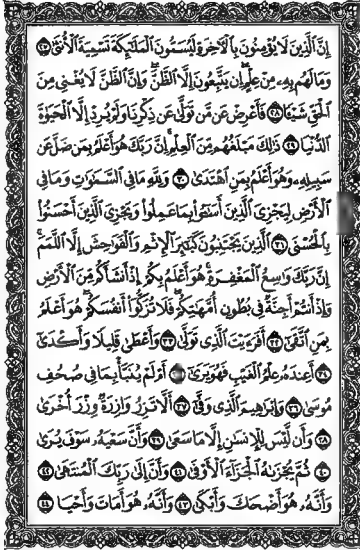 إِنَّ الَّذِينَ لَا يُؤْمِنُونَ بِالْآخِرَةِ لَيُسَمُّونَ الْمَلَائِكَةَ تَسْمِيَةَ الْأُنثَىٰ ٢٧
وَمَا لَهُم بِهِ مِنْ عِلْمٍ إِن يَتَّبِعُونَ إِلَّا الظَّنَّ وَإِنَّ الظَّنَّ لَا يُغْنِي مِنَ
الْحَقِّ شَيْئًا ٢٨ فَأَعْرِضْ عَن مَّن تَوَلَّىٰ عَن ذِكْرِنَا وَلَمْ يُرِدْ إِلَّا الْحَيَاةَ
الدُّنْيَا ٢٩ ذَٰلِكَ مَبْلَغُهُم مِّنَ الْعِلْمِ إِنَّ رَبَّكَ هُوَ أَعْلَمُ بِمَن ضَلَّ عَن
سَبِيلِهِ وَهُوَ أَعْلَمُ بِمَنِ اهْتَدَىٰ ٣٠ وَلِلَّهِ مَا فِي السَّمَاوَاتِ وَمَا فِي
الْأَرْضِ لِيَجْزِيَ الَّذِينَ أَسَاءُوا بِمَا عَمِلُوا وَيَجْزِيَ الَّذِينَ أَحْسَنُوا
بِالْحُسْنَى ٣١ الَّذِينَ يَجْتَنِبُونَ كَبَائِرَ الْإِثْمِ وَالْفَوَاحِشَ إِلَّا اللَّمَمَ
إِنَّ رَبَّكَ وَاسِعُ الْمَغْفِرَةِ هُوَ أَعْلَمُ بِكُمْ إِذْ أَنشَأَكُم مِّنَ الْأَرْضِ
وَإِذْ أَنتُمْ أَجِنَّةٌ فِي بُطُونِ أُمَّهَاتِكُمْ فَلَا تُزَكُّوا أَنفُسَكُمْ هُوَ أَعْلَمُ
بِمَنِ اتَّقَىٰ ٣٢ أَفَرَأَيْتَ الَّذِي تَوَلَّىٰ ٣٣ وَأَعْطَىٰ قَلِيلًا وَأَكْدَىٰ
٣٤ أَعِندَهُ عِلْمُ الْغَيْبِ فَهُوَ يَرَىٰ ٣٥ أَمْ لَمْ يُنَبَّأْ بِمَا فِي صُحُفِ
مُوسَىٰ ٣٦ وَإِبْرَاهِيمَ الَّذِي وَفَّىٰ ٣٧ أَلَّا تَزِرُ وَازِرَةٌ وِزْرَ أُخْرَىٰ
٣٨ وَأَن لَّيْسَ لِلْإِنسَانِ إِلَّا مَا سَعَىٰ ٣٩ وَأَنَّ سَعْيَهُ سَوْفَ يُرَىٰ
٤٠ ثُمَّ يُجْزَاهُ الْجَزَاءَ الْأَوْفَىٰ ٤١ وَأَنَّ إِلَىٰ رَبِّكَ الْمُنتَهَىٰ ٤٢
وَأَنَّهُ هُوَ أَضْحَكَ وَأَبْكَىٰ ٤٣ وَأَنَّهُ هُوَ أَمَاتَ وَأَحْيَا ٤٤